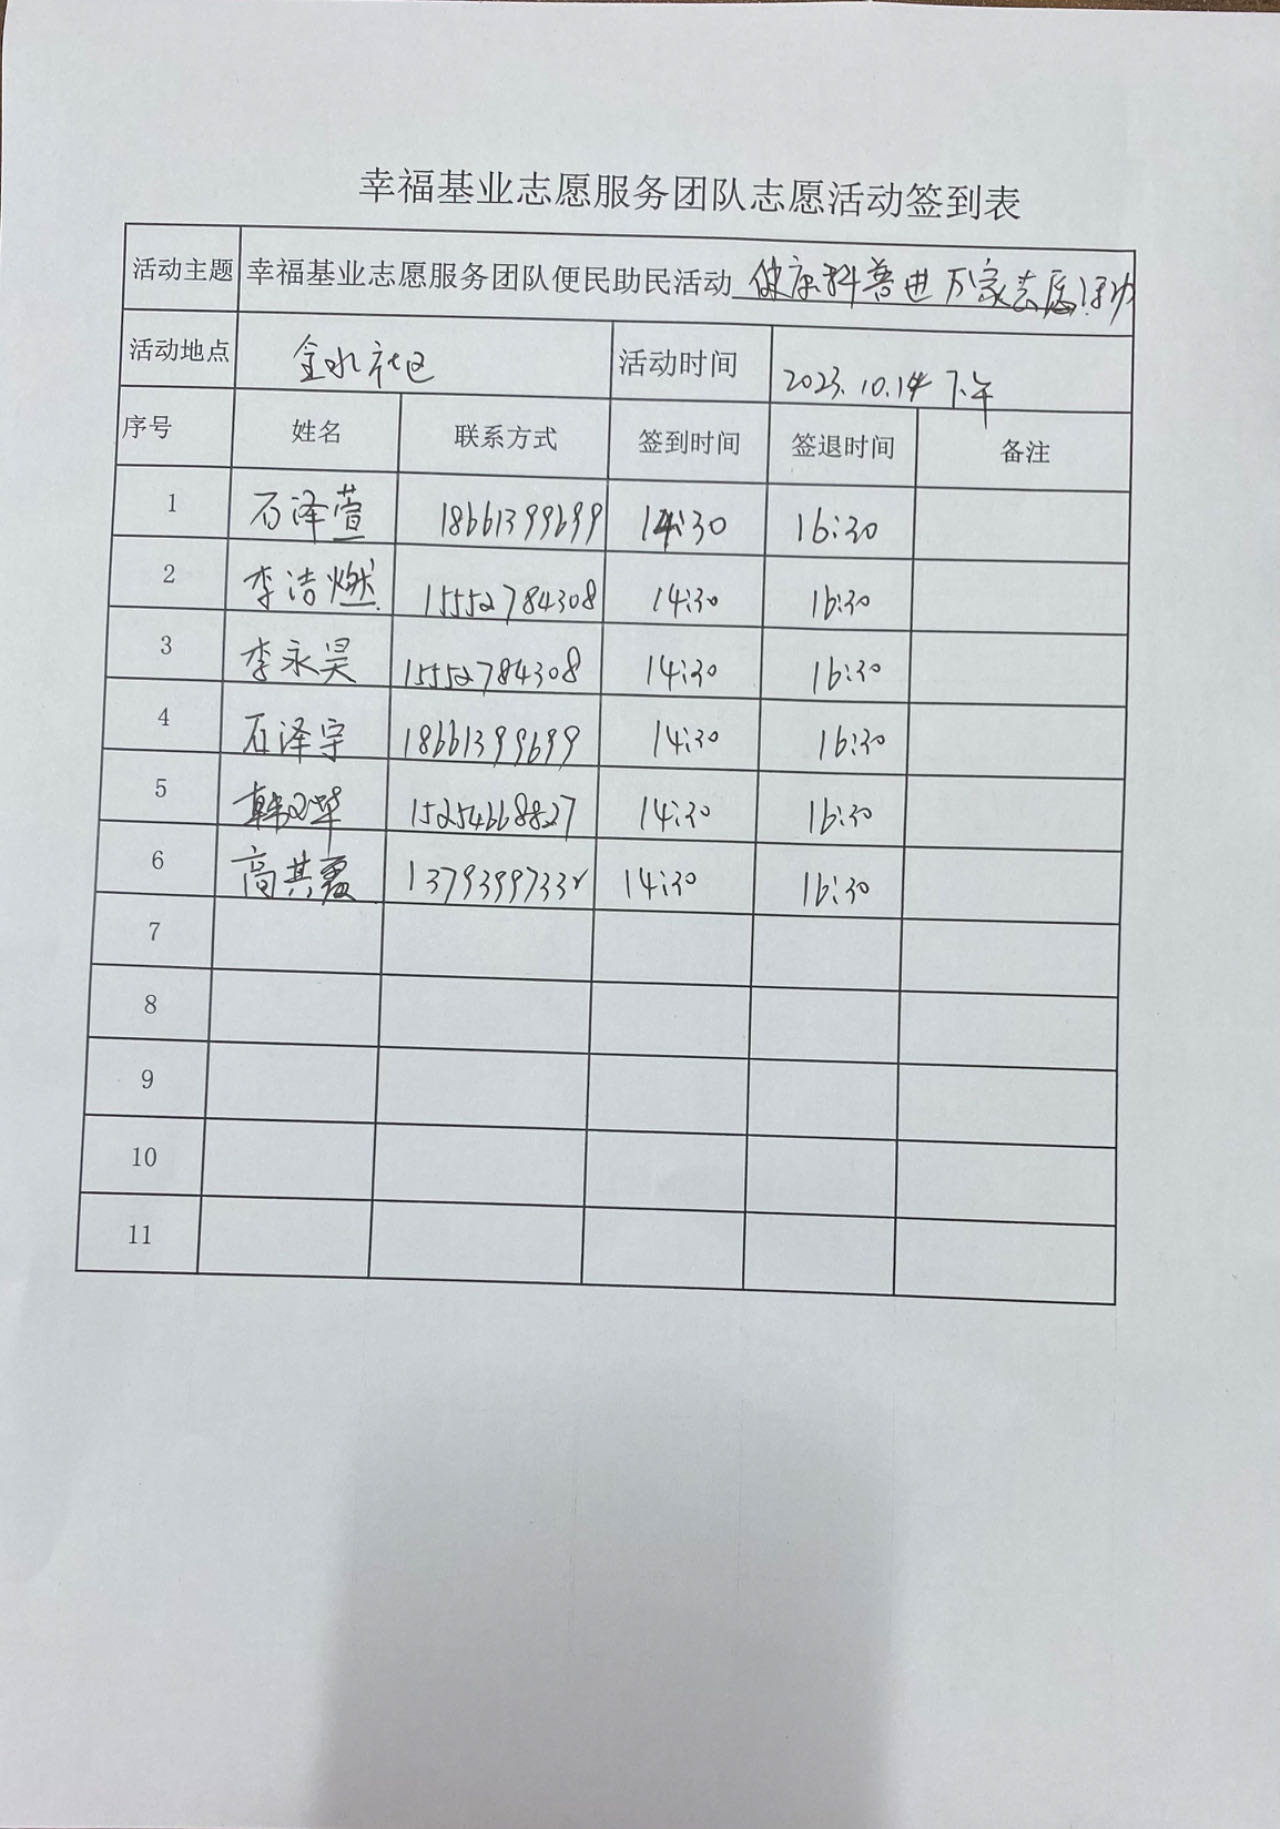 幸福基业志愿服务团队志愿活动签到表
活动主题 幸福基业志愿服务团队便民助民活动 健康科普进万家志愿活动
活动地点 金水社区 活动时间 2023.10.14 下午
序号 姓名 联系方式 签到时间 签退时间 备注
1 石泽萱 18661399699 14:30 16:30
2 李洁燃 15552784308 14:30 16:30
3 李永昊 15552784308 14:30 16:30
4 石泽宇 18661399699 14:30 16:30
5 15254668827 14:30 16:30
6 高其霞 13793997332 14:30 16:30
7
8
9
10
11